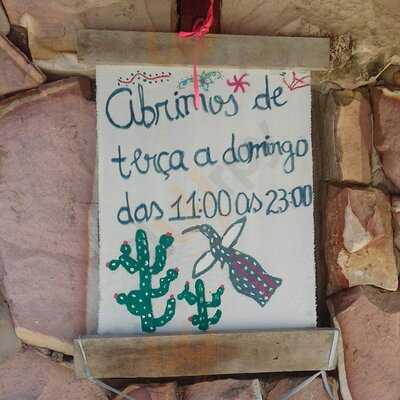 Abrimos de
terça a domingo
das 11:00 as 23:00